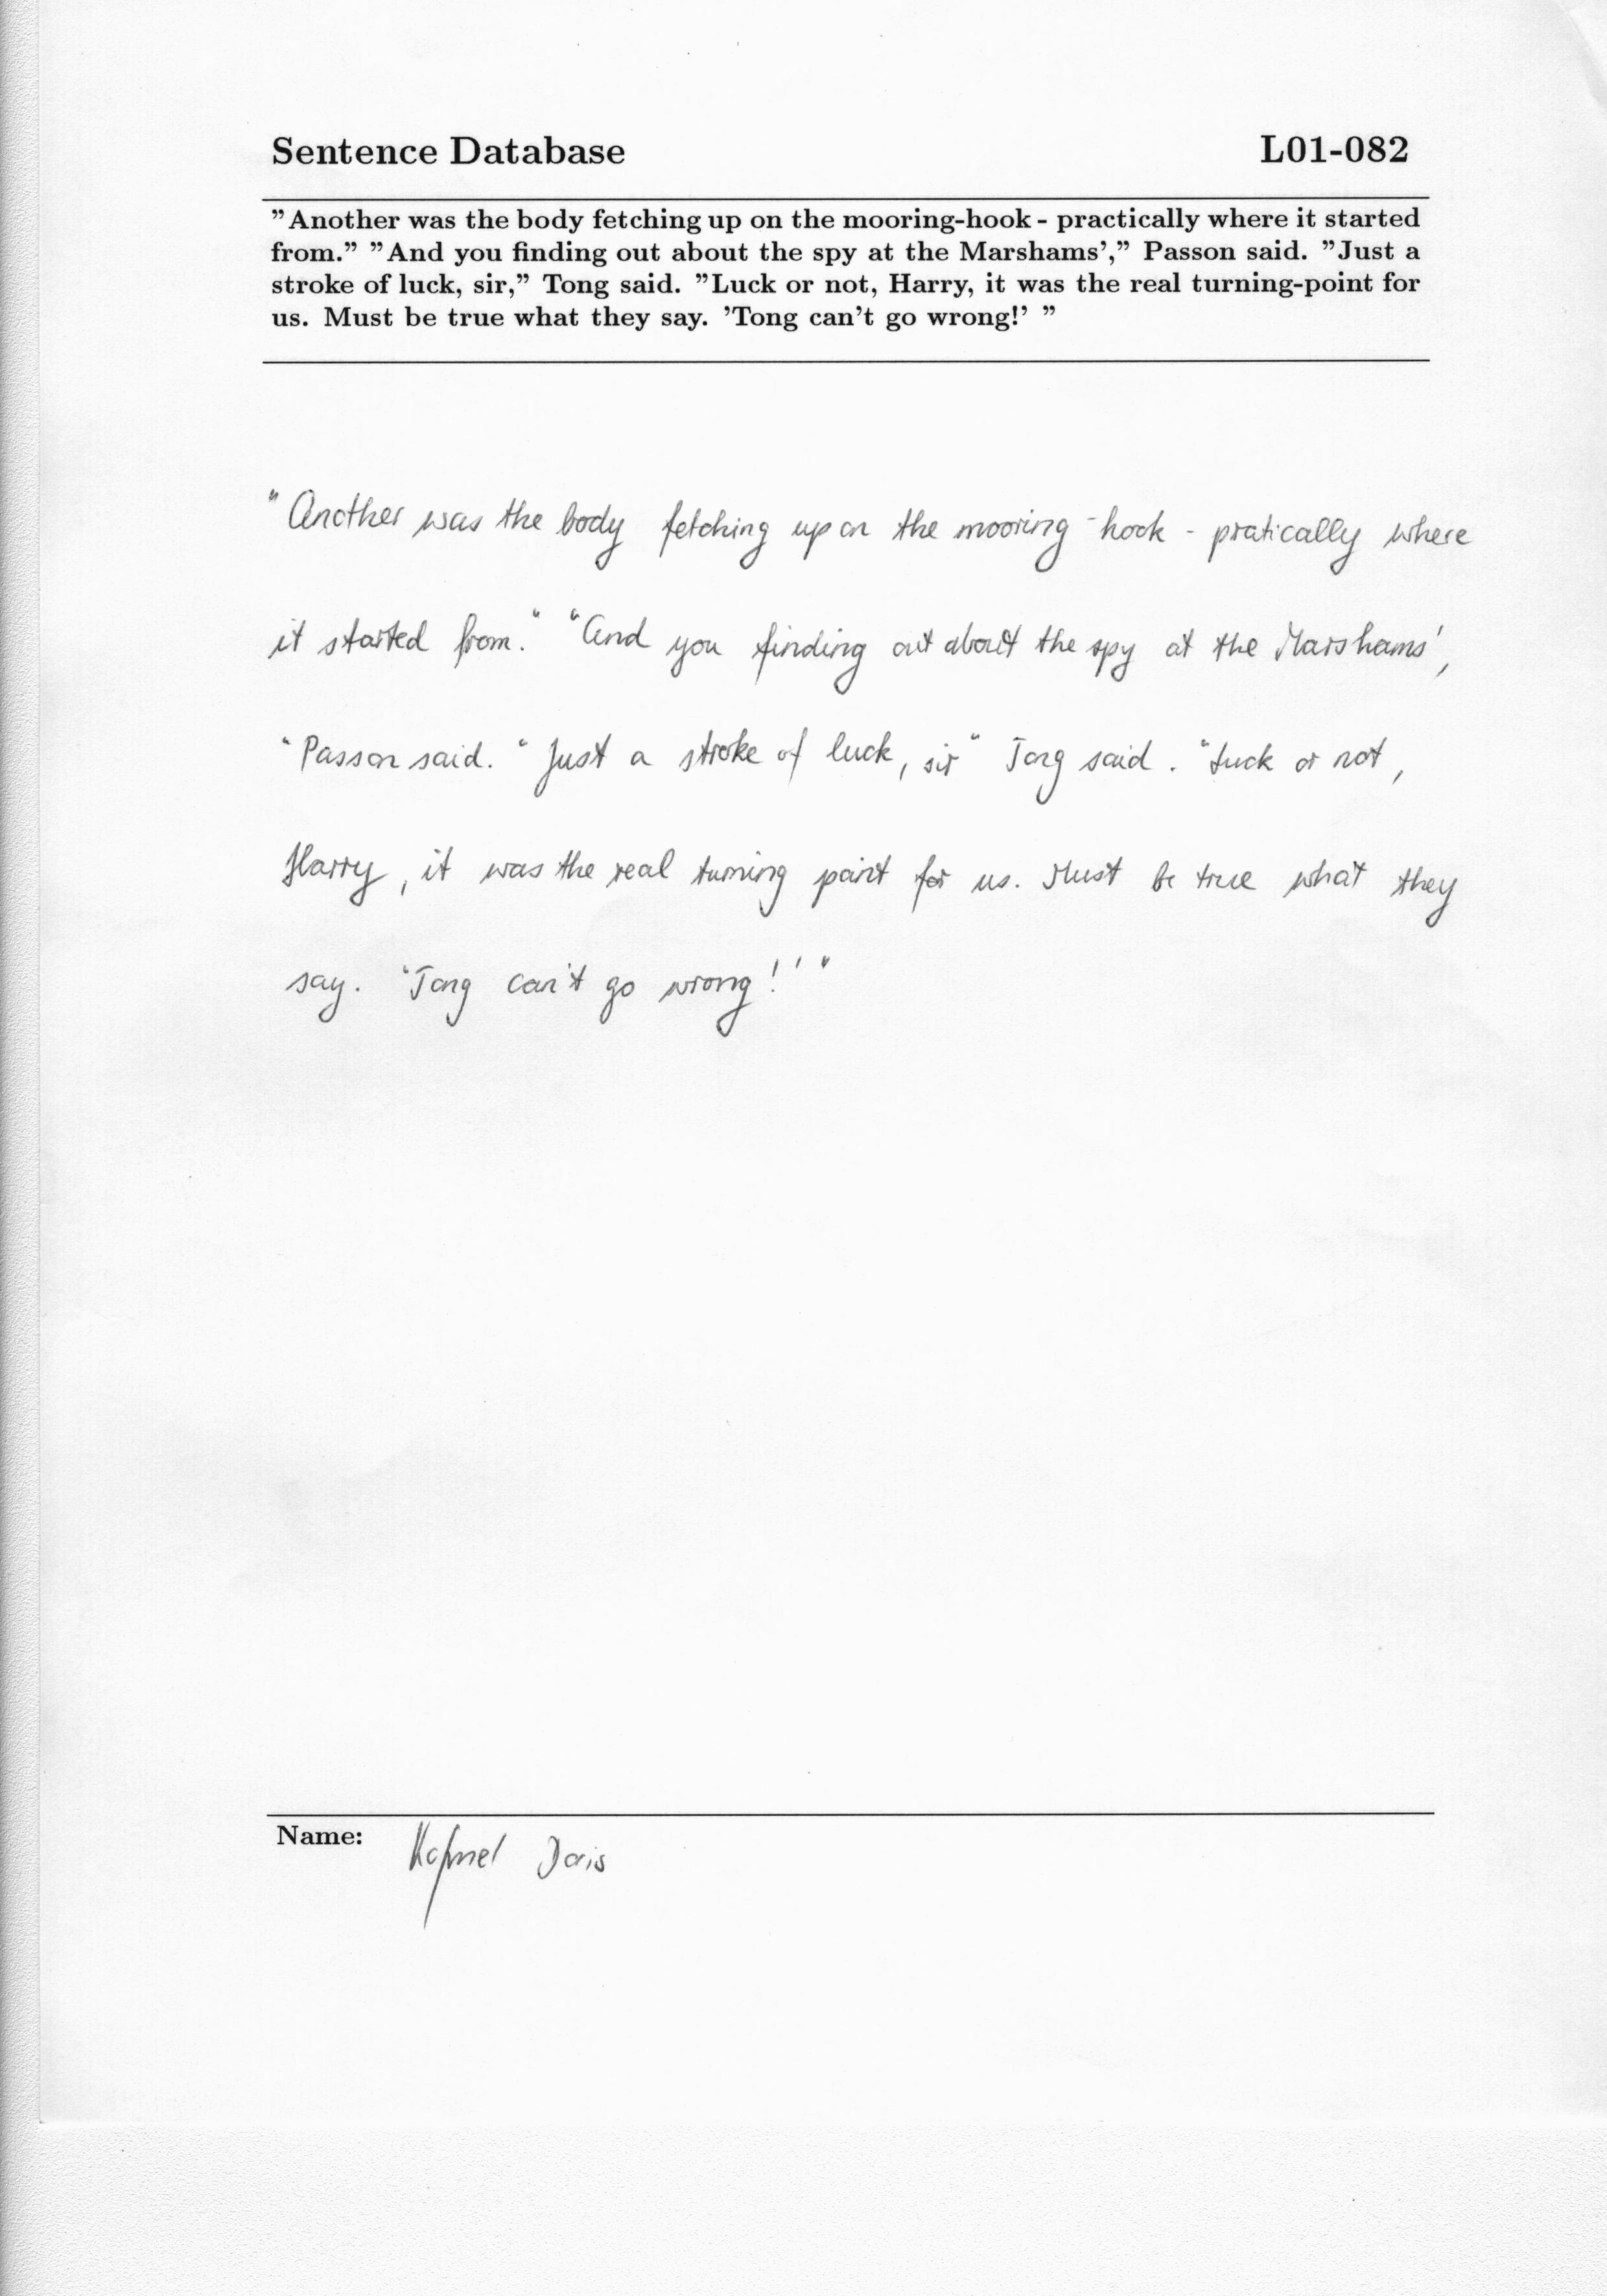 Sentence Database L01-082
"Another was the body fetching up on the mooring-hook - practically where it started
from." "And you finding out about the spy at the Marshams'," Passon said. "Just a
stroke of luck, sir," Tong said. "Luck or not, Harry, it was the real turning-point for
us. Must be true what they say. 'Tong can't go wrong!' "
"Another was the body fetching up on the mooring-hook - pratically where
it started from." "And you finding out about the spy at the Marshams',
"Passon said. "Just a stroke of luck, sir" Tong said. "Luck or not,
Harry, it was the real turning point for us. Must be true what they
say. "Tong can't go wrong!' "
Name: Doris